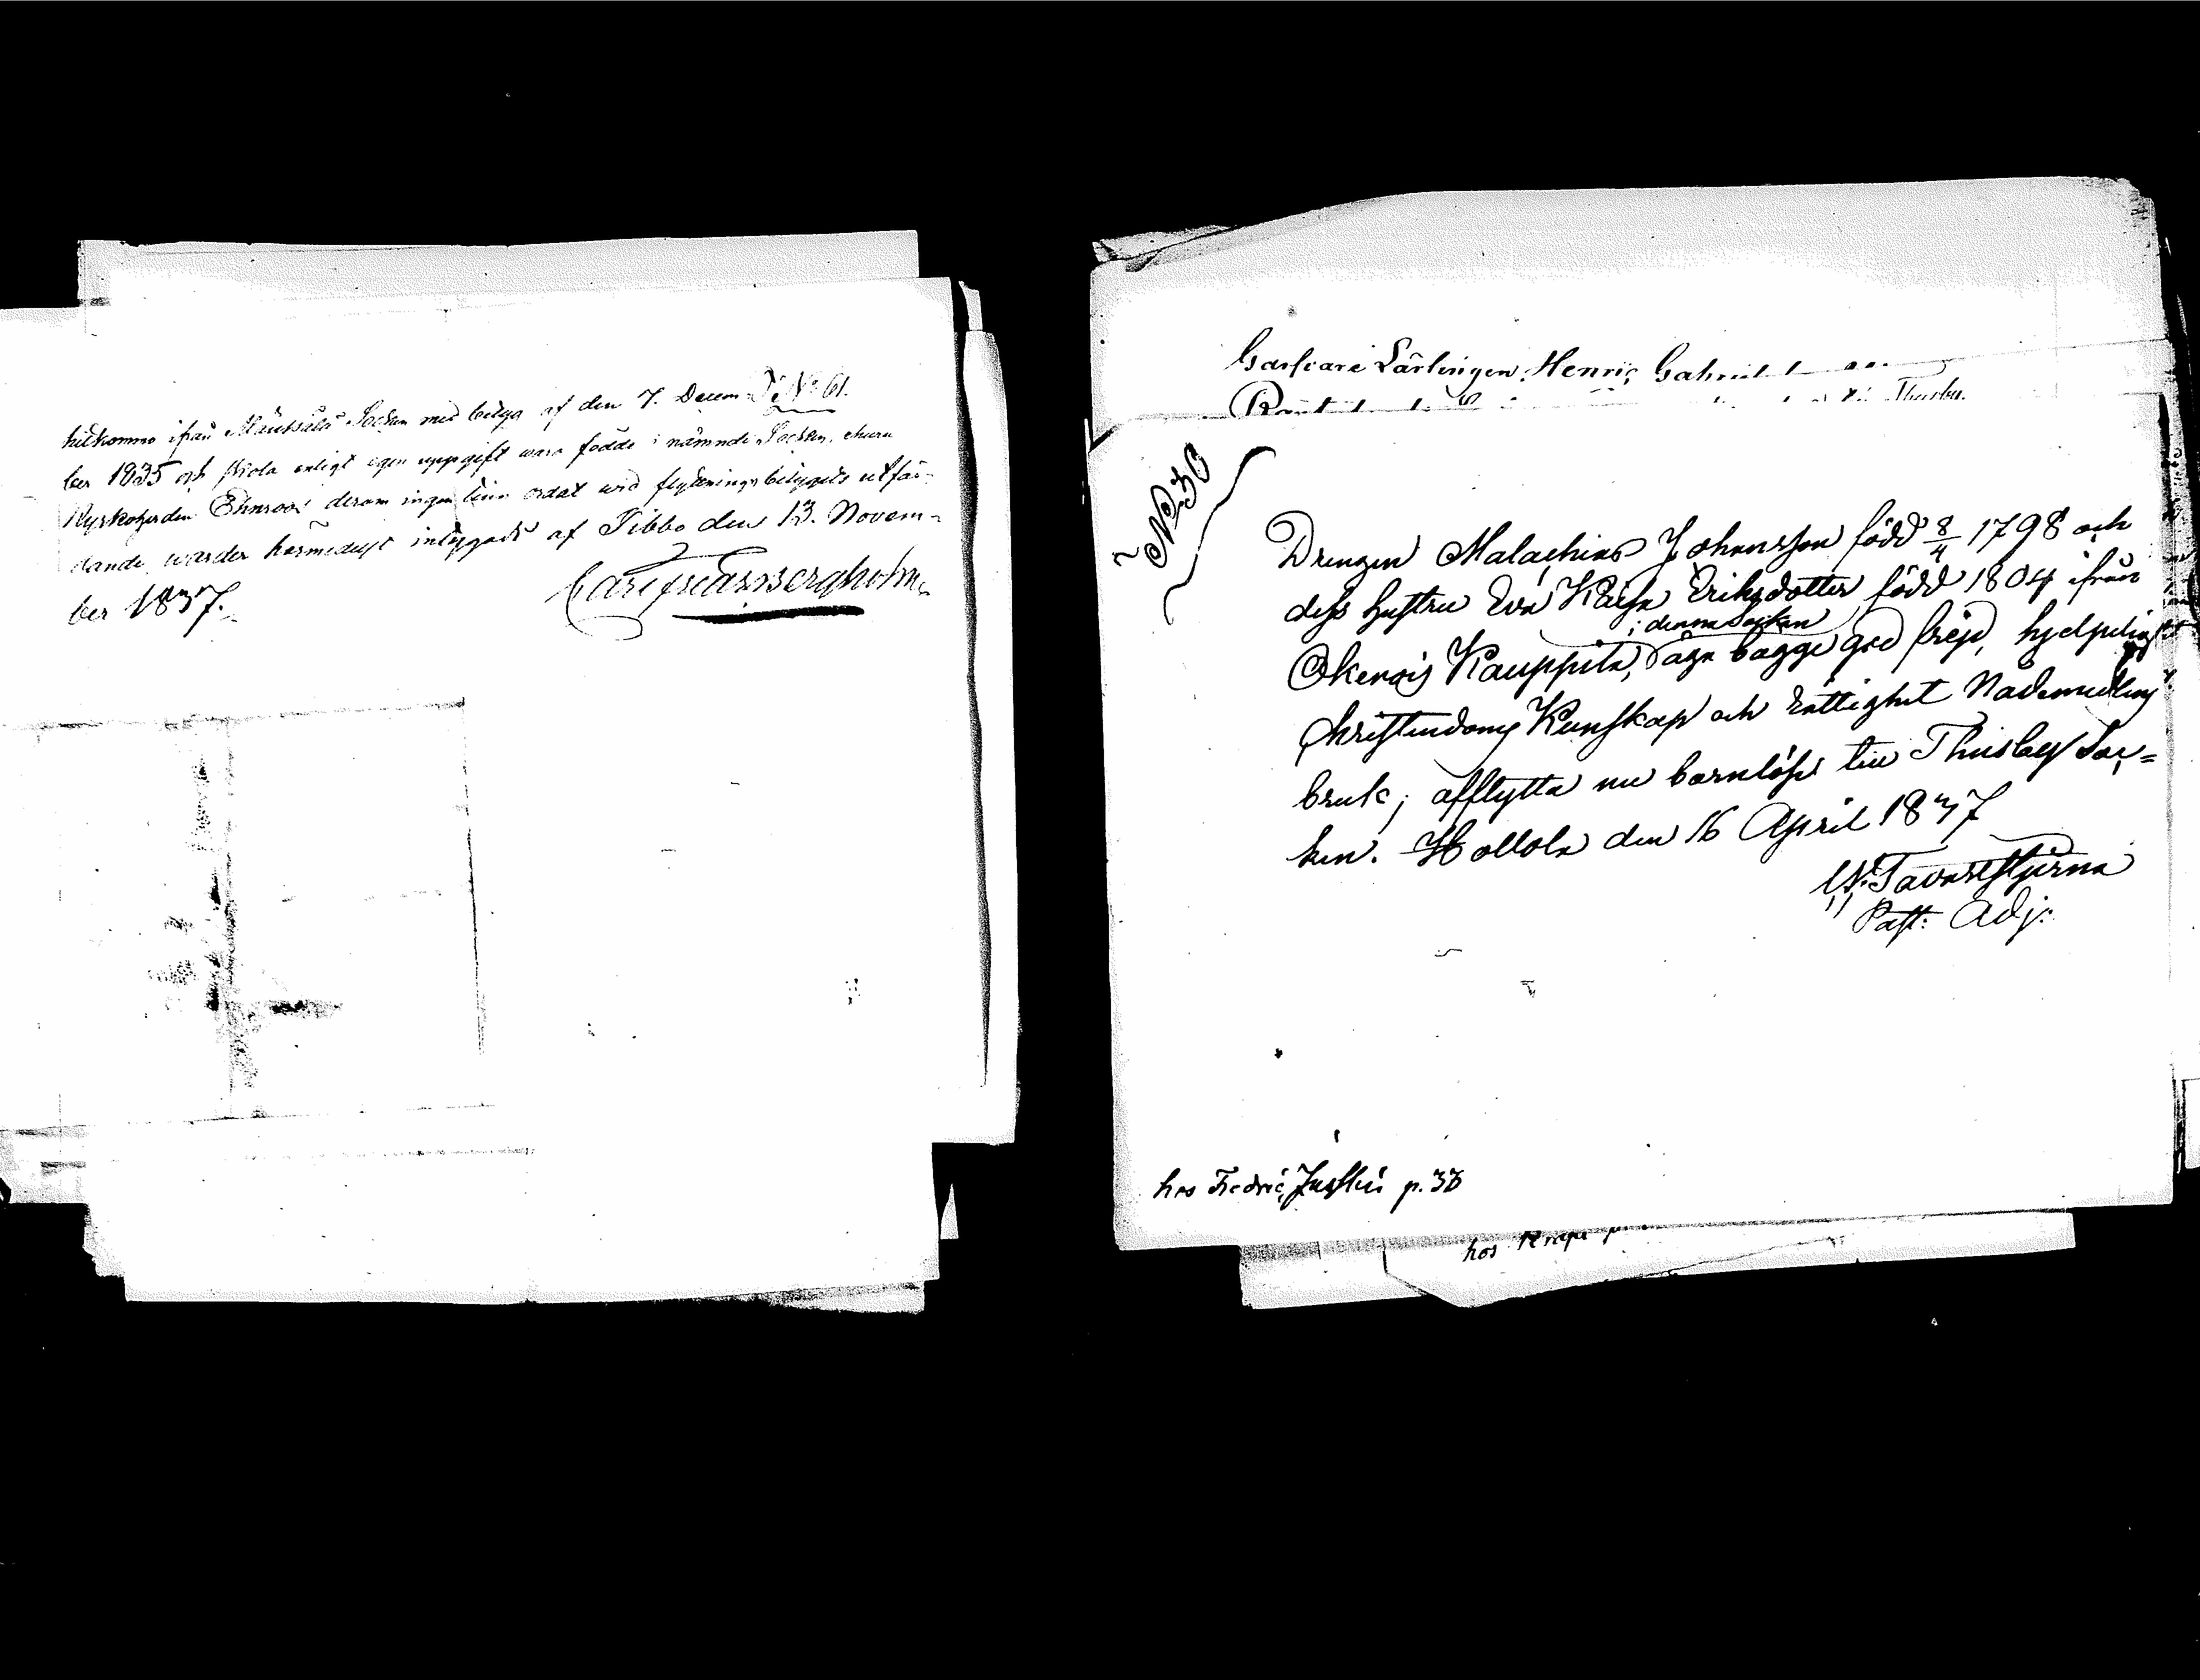 N:o 61.
hitkomne ifrån Mäntsälä Socken med betyg af den 7. Decem-
ber 1835 och skola enligt egen uppgift vara födde i nämnde Socken, ehuru
Kyrkoherden Ehnroos derom ingen ting ordat wid flyttningsbetygets utfär-
dande, warder härmedelst intygadt af Sibbo den 13. Novem-
ber 1837.
Carl Bergholm
Garfvare Lärlingen Henric Gabriel
Thusby.
N:o 30
Drengen Malachias Johansson född 8/4 1798 och
dess hustru Eva Kaisa Eriksdotter född 1804 ifrån
i denna Socken
Okerois Kauppila, äga bägge god frejd, hjelpelig
Christendoms Kunskap och rättighet Nademedlens
bruk; afflytta nu barnlöse till Thusby Soc=
ken. Hollola den 16 April 1837
Tavaststjerna
Past: Adj:
hos Fredric Justus p. 38
hos